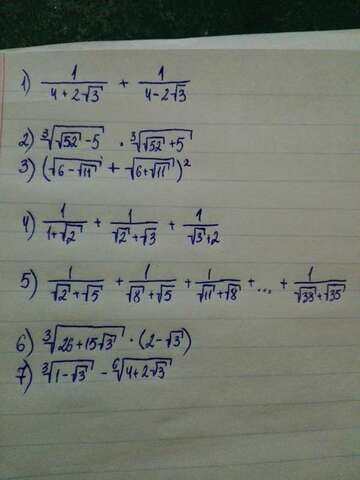 1) 1/(4+2√3) + 1/(4-2√3)
2) ∛(√52 - 5) · ∛(√52 + 5)
3) (√(6-√11) + √(6+√11))²
4) 1/(1+√2) + 1/(√2+√3) + 1/(√3+2)
5) 1/(√2+√5) + 1/(√8+√5) + 1/(√11+√8) + ... + 1/(√38+√35)
6) ∛(26+15√3) · (2-√3)
7) ∛(1-√3) - ⁶√(4+2√3)